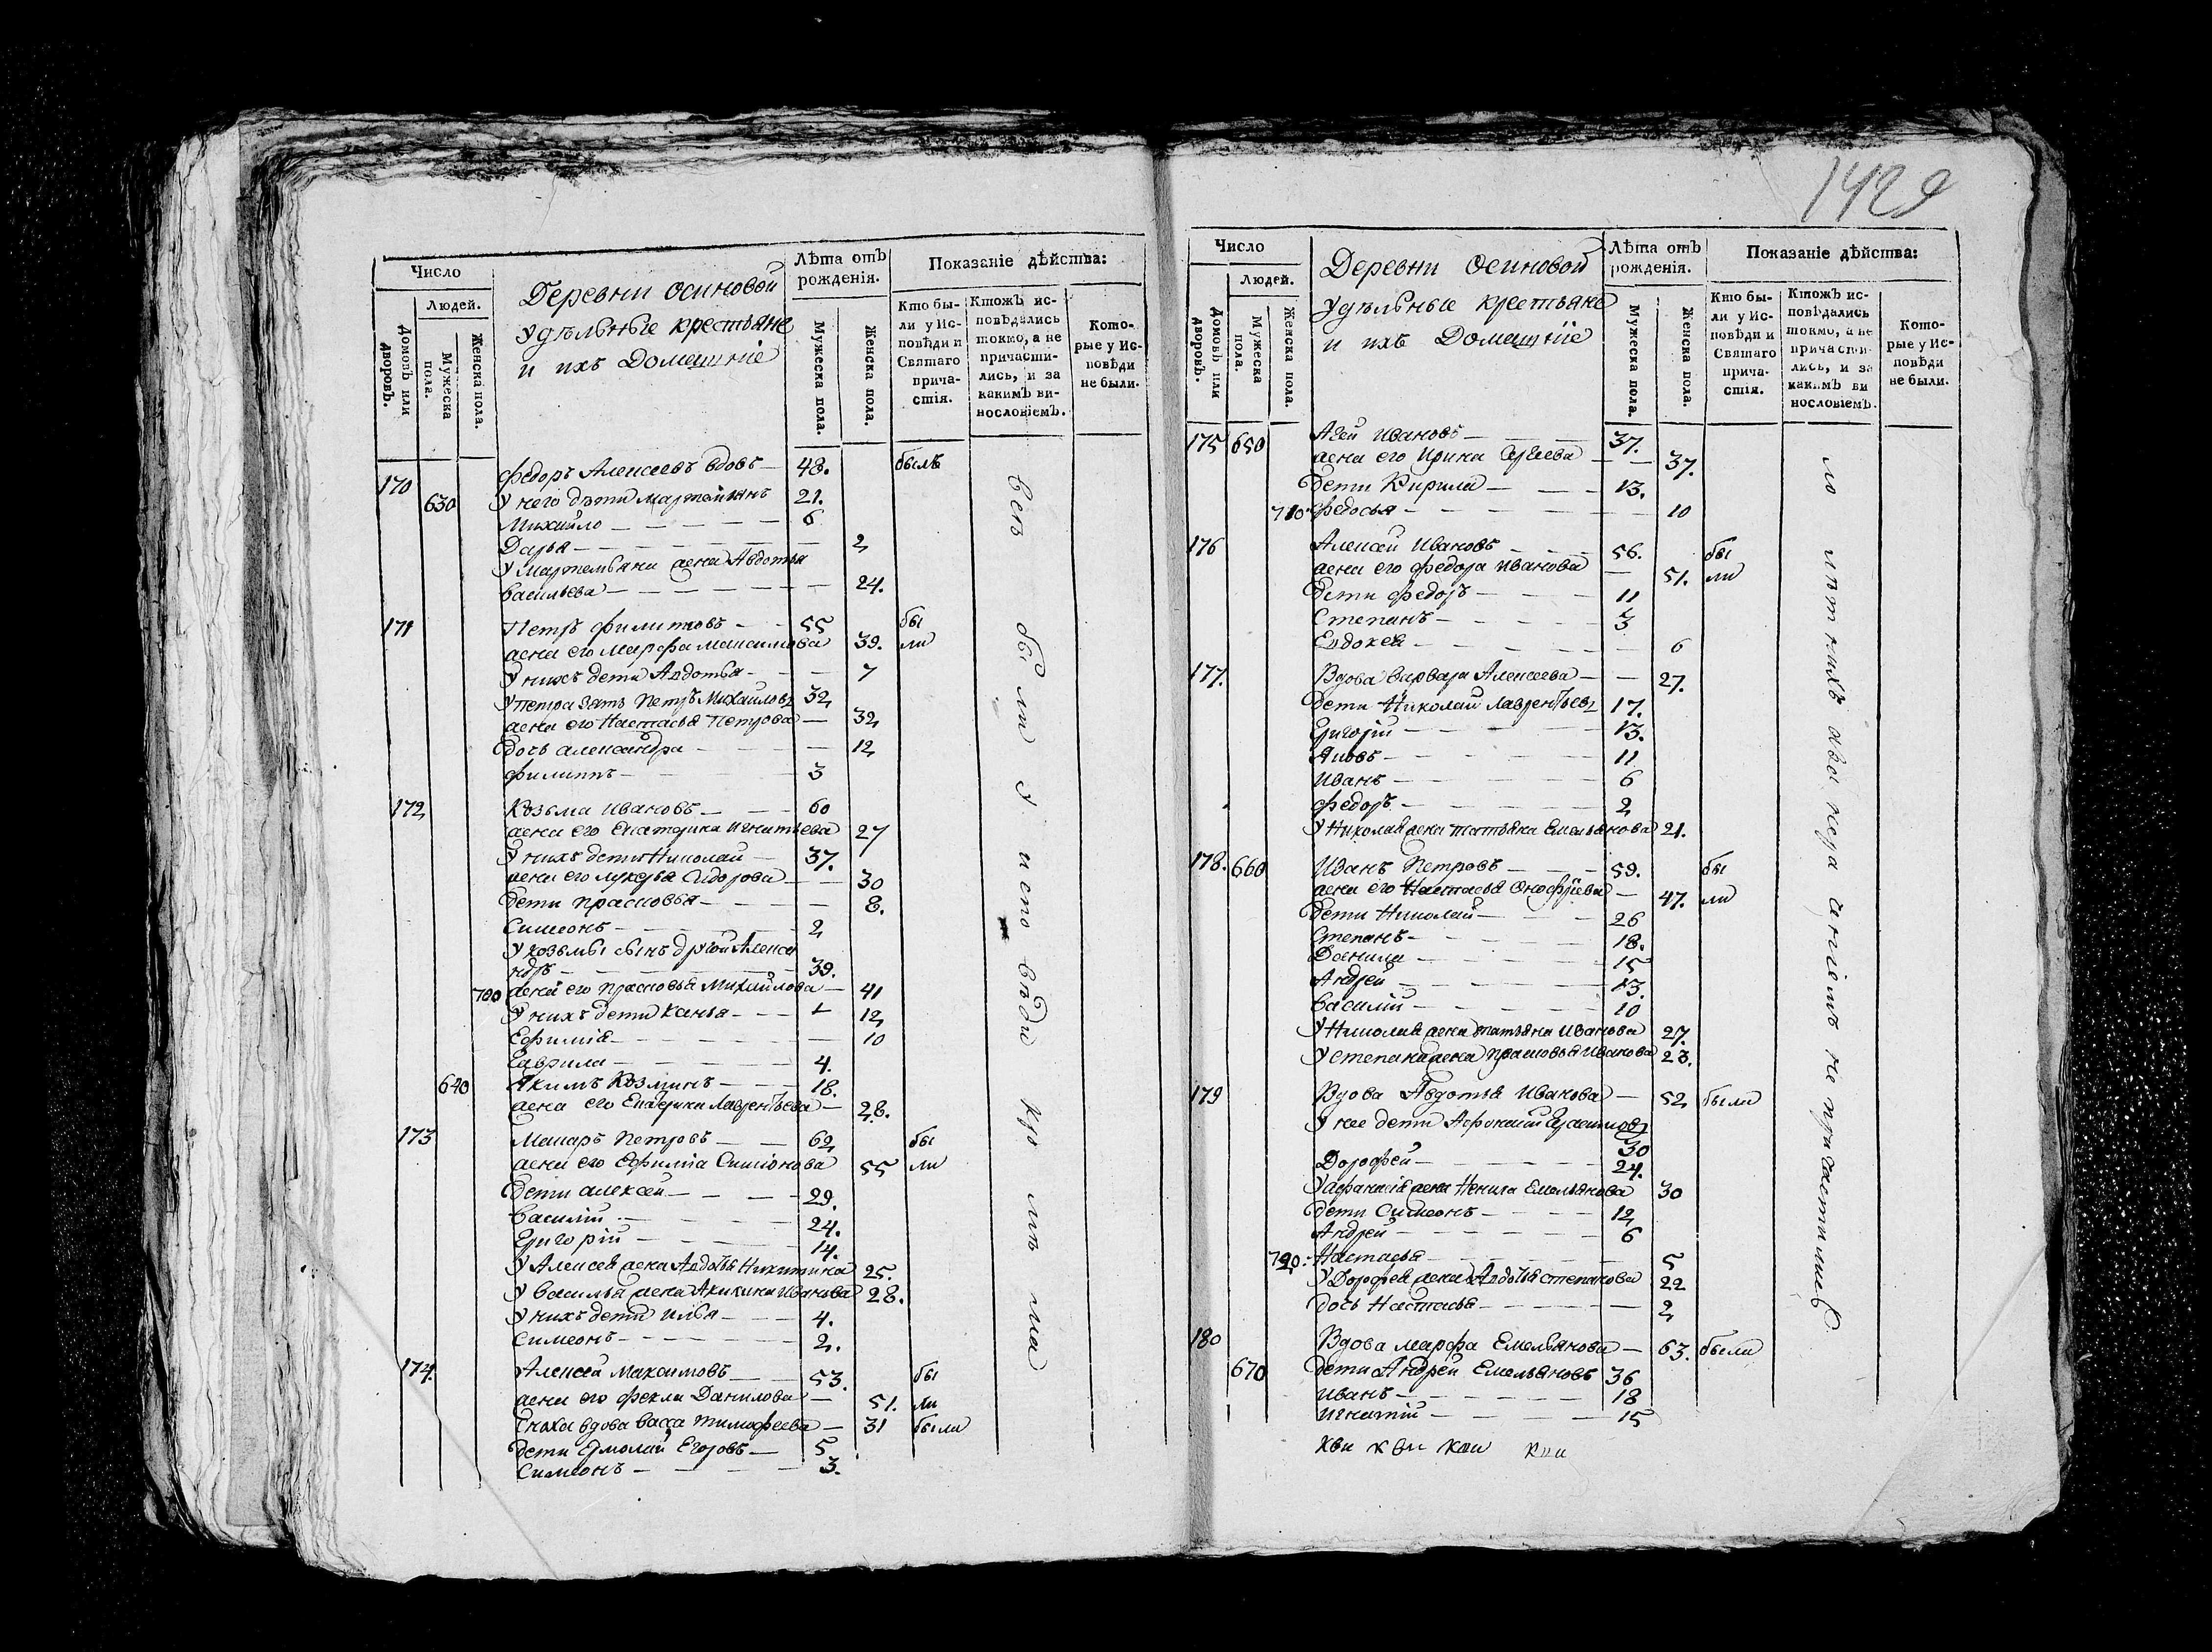 Число
Людей.
Домовъ или дворовъ.
Мужеска пола.
Женска пола.
Деревни Осиновой
Удѣльные крестьяне
и ихъ Домашніе
Лѣта отъ рожденія.
Мужеска пола.
Женска пола.
Показаніе дѣйства:
Кто были у Исповѣди и Святаго причастія.
Ктожъ исповѣдались токмо, а не причастились, и за какимъ винословіемъ.
Которые у Исповѣди не были.
170 федоръ Алексеевъ вдовъ — 48. былъ
630 У него дѣти Мартемьянъ 21.
Михайло — 6
Дарья — 2
У Мартемьяна жена Авдотья
васильева — 24.
171 Петръ филиповъ — 55 бы
жена его Марфа Максимова 39. ли
У нихъ дети Авдотья — 7
У Петра зять Петръ Михайловъ 32
жена его Настасья Петрова — 32
дочь александра — 12
филиппъ — 3
172 Козьма Ивановъ — 60
жена его Екатерина Игнатьева 27
У нихъ дети Николай — 37.
жена его лукерья Сидорова — 30
дети прасковья — 8.
Симеонъ — 2
У козьмы сынъ другой Алекса
ндръ — 39.
700 жена его прасковья Михайлова — 41
У нихъ дети — 12
Ефимія — 10
Гаврила — 4.
640 Якимъ Козминъ — 18.
жена его Екатерина Лаврентьева — 28.
173 Макаръ Петровъ — 62 бы
жена его Ефимія Симіонова 55 ли
дети алексѣй — 29.
Василій — 24.
Григорій — 14.
У Алексея жена Авдотья Никитина 25.
У василья жена Акилина Иванова 28.
У нихъ дети илья — 4.
Симеонъ — 2.
174. Алексей Максимовъ — 53. бы
жена его фекла Данилова — 51. ли
Сноха вдова васса тимофеева — 31 были
дети Ермолай Егоровъ — 5
Симеонъ — 3.
Всѣ были у исповѣди кро мѣ ма
1429
Число
Людей.
Домовъ или дворовъ.
Мужеска пола.
Женска пола.
Деревни Осиновой
Удѣльные крестьяне
и ихъ Домашніе
Лѣта отъ рожденія.
Мужеска пола.
Женска пола.
Показаніе дѣйства:
Кто были у Исповѣди и Святаго причастія.
Ктожъ исповѣдались токмо, а не причастились, и за какимъ винословіемъ.
Которые у Исповѣди не были.
175 650 Агей Ивановъ — 37.
жена его Ирина Сергеева — 37.
дети Кирила — 13.
710 федосья — 10
176 Алексей Ивановъ — 56. бы
жена его федора иванова — 51. ли
дети федоръ — 11
Степанъ — 3
Евдокея — 6
177. Вдова варвара Алексеева — 27.
дети Николай Лаврентьевъ 17.
Григорій — 13.
Яковъ — 11
Иванъ — 6
федоръ — 2
У Николая жена татьяна Емельянова 21.
178. 660 Иванъ Петровъ — 59. бы
жена его Настасья Онофріева — 47. ли
дети Николай — 26
Степанъ — 18.
Данила — 15
Андрей — 13.
Василій — 10
У Николая жена татьяна Иванова 27.
У степана жена прасковья Иванова 23.
179 Вдова Авдотья Иванова — 52 были
У нее дети Афонасій
30
Дорофей — 24.
У афанасія жена Ненила Емельянова 30
дети Симеонъ — 12
Андрей — 6
720. Настасья — 5
У Дорофея жена Авдотья степанова 22
дочь Настасья — 2
180 Вдова марфа Емельянова — 63. были
670 дети Андрей Емельяновъ 36
иванъ — 18
игнатій — 15